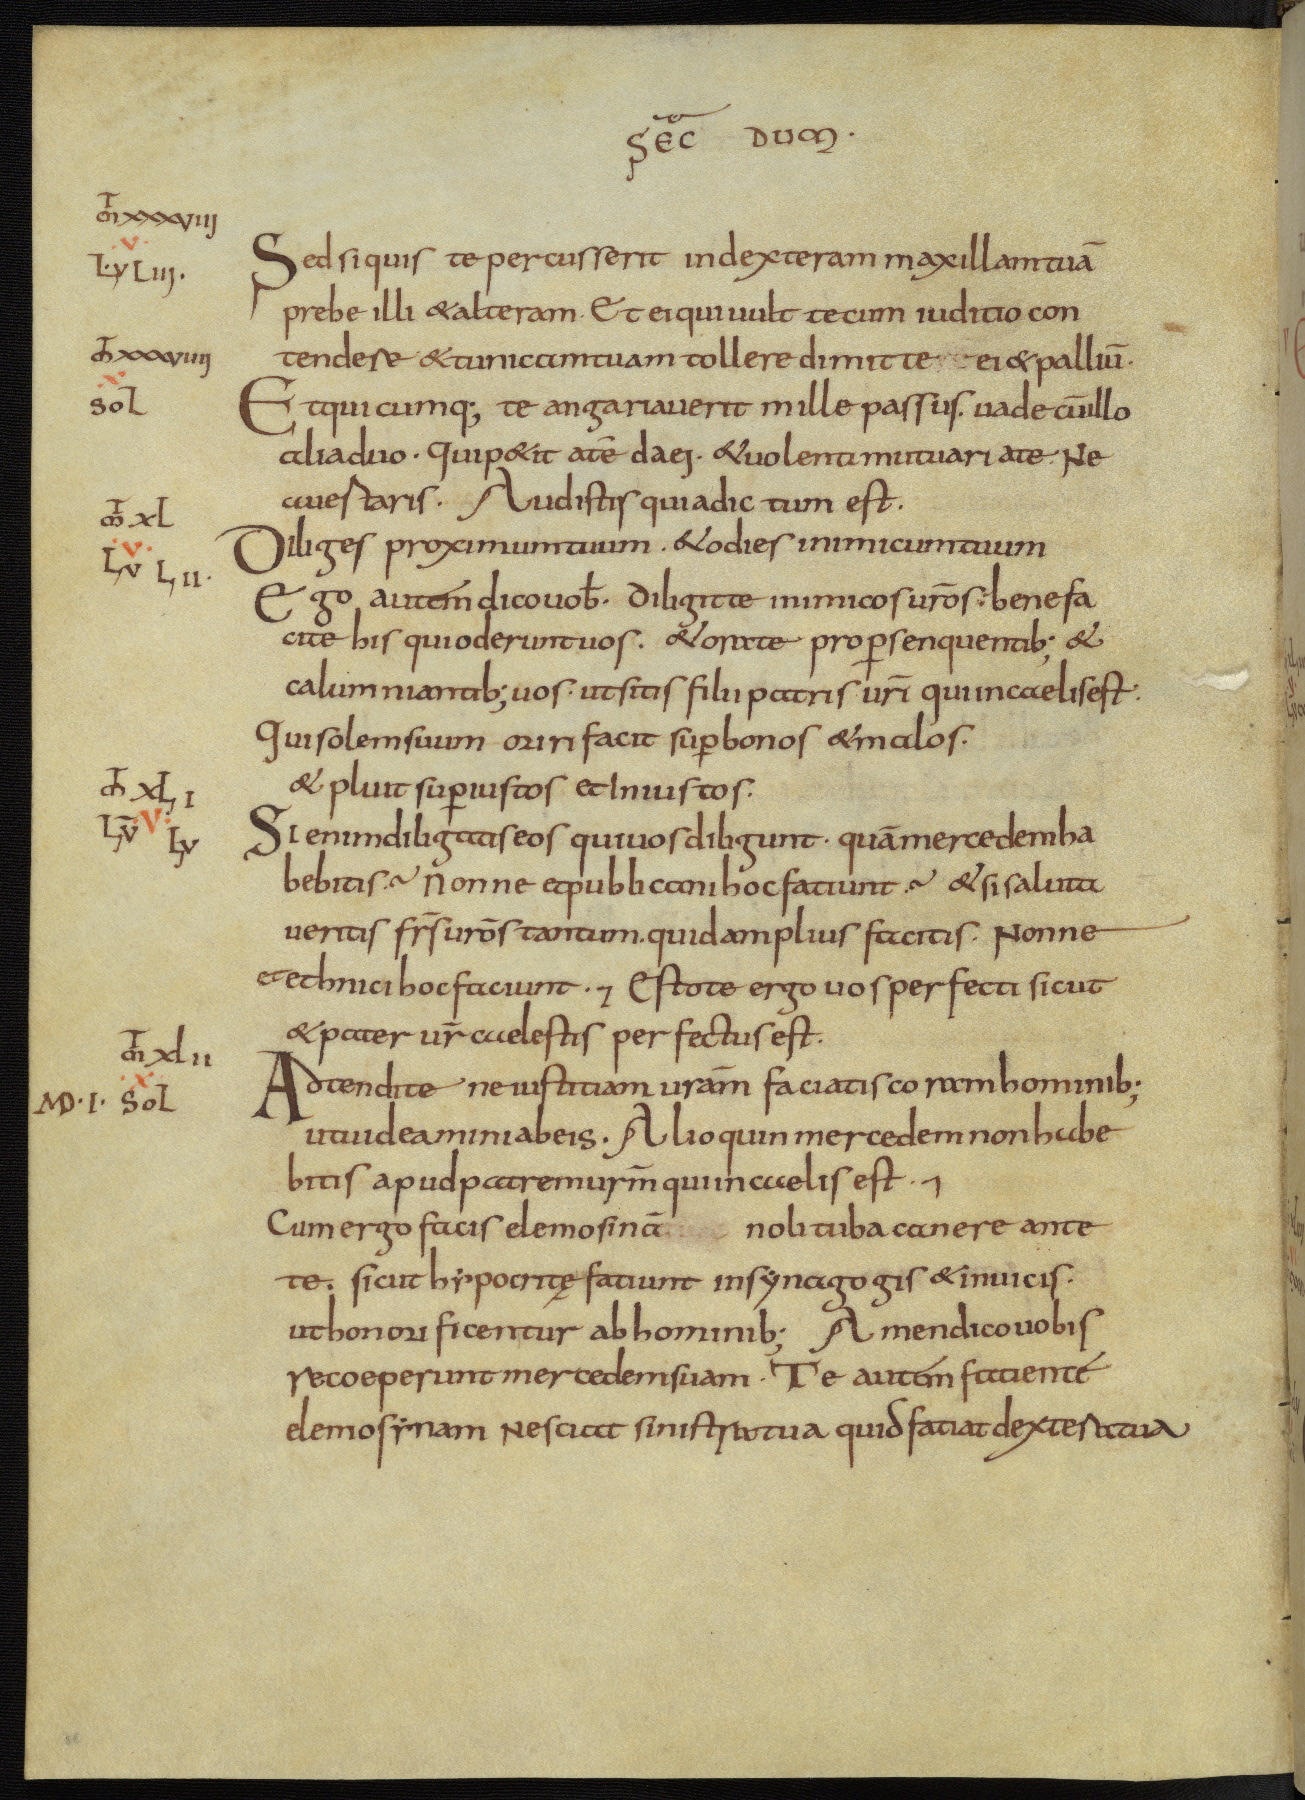 SEC DUM.
m̅ xxxviii
v
L·v Liii.
Sed si quis te percusserit in dexteram maxillam tuā
prebe illi & alteram. Et ei qui uult tecum iuditio con
m̅ xxxviiii
tendere & tunicam tuam tollere dimitte ei & palliū.
x
sol
Et qui cumq; te angariauerit mille passus. uade cū illo
alia duo. Qui p&it a te da ei. & uolenti mutuari a te. Ne
auestaris. Audistis quia dictum est.
m̅ xl
v
Lv Lii.
Diliges proximum tuum. & odies inimicum tuum
Ego autem dico uob. diligite inimicos uros. benefa
cite his qui oderunt uos. & orate pro psequentib; &
calumniantib; uos. ut sitis filii patris uri qui in caelis est.
Qui solem suum oriri facit sup bonos & malos.
m̅ xLi
& pluit sup iustos et iniustos.
v
Lv Lv
Si enim diligitis eos qui uos diligunt. quā mercedem ha
bebitis. Nonne et publicani hoc fatiunt. & si saluta
ueritis frs uros tantum. quid amplius facitis. Nonne
et ethnici hoc faciunt. Estote ergo uos perfecti sicut
& pater ur caelestis perfectus est.
m̅ xlii
x
MD.I. Sol
Adtendite ne iustitiam uram faciatis coram hominib;
ut uideamini ab eis. Alioquin mercedem non habe
bitis apud patrem urm qui in caelis est.
Cum ergo facis elemosinā noli tuba canere ante
te. sicut hypocritę fatiunt in synagogis & in uicis.
ut honorificentur ab hominib; Amen dico uobis
recoeperunt mercedem suam. Te autem facientē
elemosynam Nesciat sinistra tua quid fatiat dextera tua